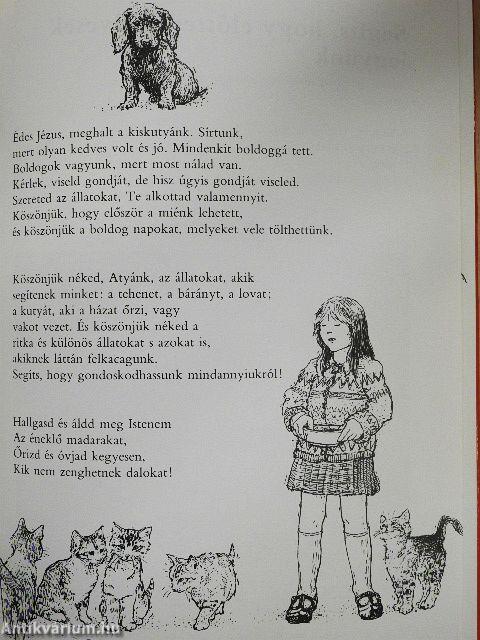 Édes Jézus, meghalt a kiskutyánk. Sírtunk,
mert olyan kedves volt és jó. Mindenkit boldoggá tett.
Boldogok vagyunk, mert most nálad van.
Kérlek, viseld gondját, de hisz úgyis gondját viseled.
Szereted az állatokat, Te alkottad valamennyit.
Köszönjük, hogy először a miénk lehetett,
és köszönjük a boldog napokat, melyeket vele tölthettünk.
Köszönjük néked, Atyánk, az állatokat, akik
segítenek minket: a tehenet, a bárányt, a lovat;
a kutyát, aki a házat őrzi, vagy
vakot vezet. És köszönjük néked a
ritka és különös állatokat s azokat is,
akiknek láttán felkacagunk.
Segíts, hogy gondoskodhassunk mindannyiukról!
Hallgasd és áldd meg Istenem
Az éneklő madarakat,
Őrizd és óvjad kegyesen,
Kik nem zenghetnek dalokat!
Antikvarium.hu